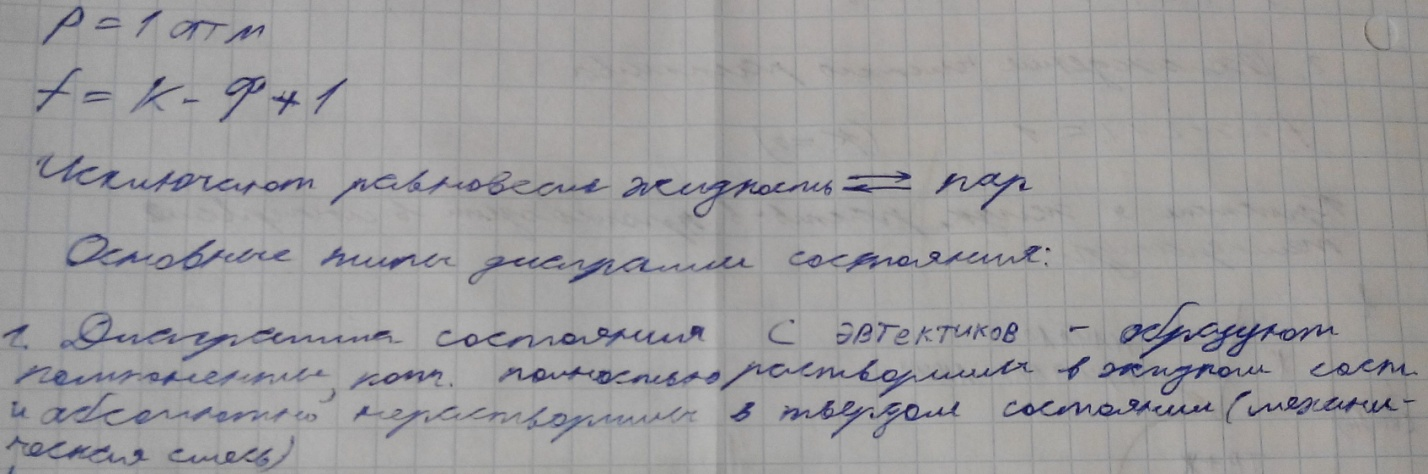 P = 1 атм
f = К - Ф + 1
Исключают равновесие жидкость ⇌ пар
Основные типы диаграмм состояния:
1. Диаграмма состояния с эвтектиков - образуют
компоненты, кот. полностью растворимы в жидком сост.
и абсолютно нерастворимы в твердом состоянии (механи-
ческая смесь)